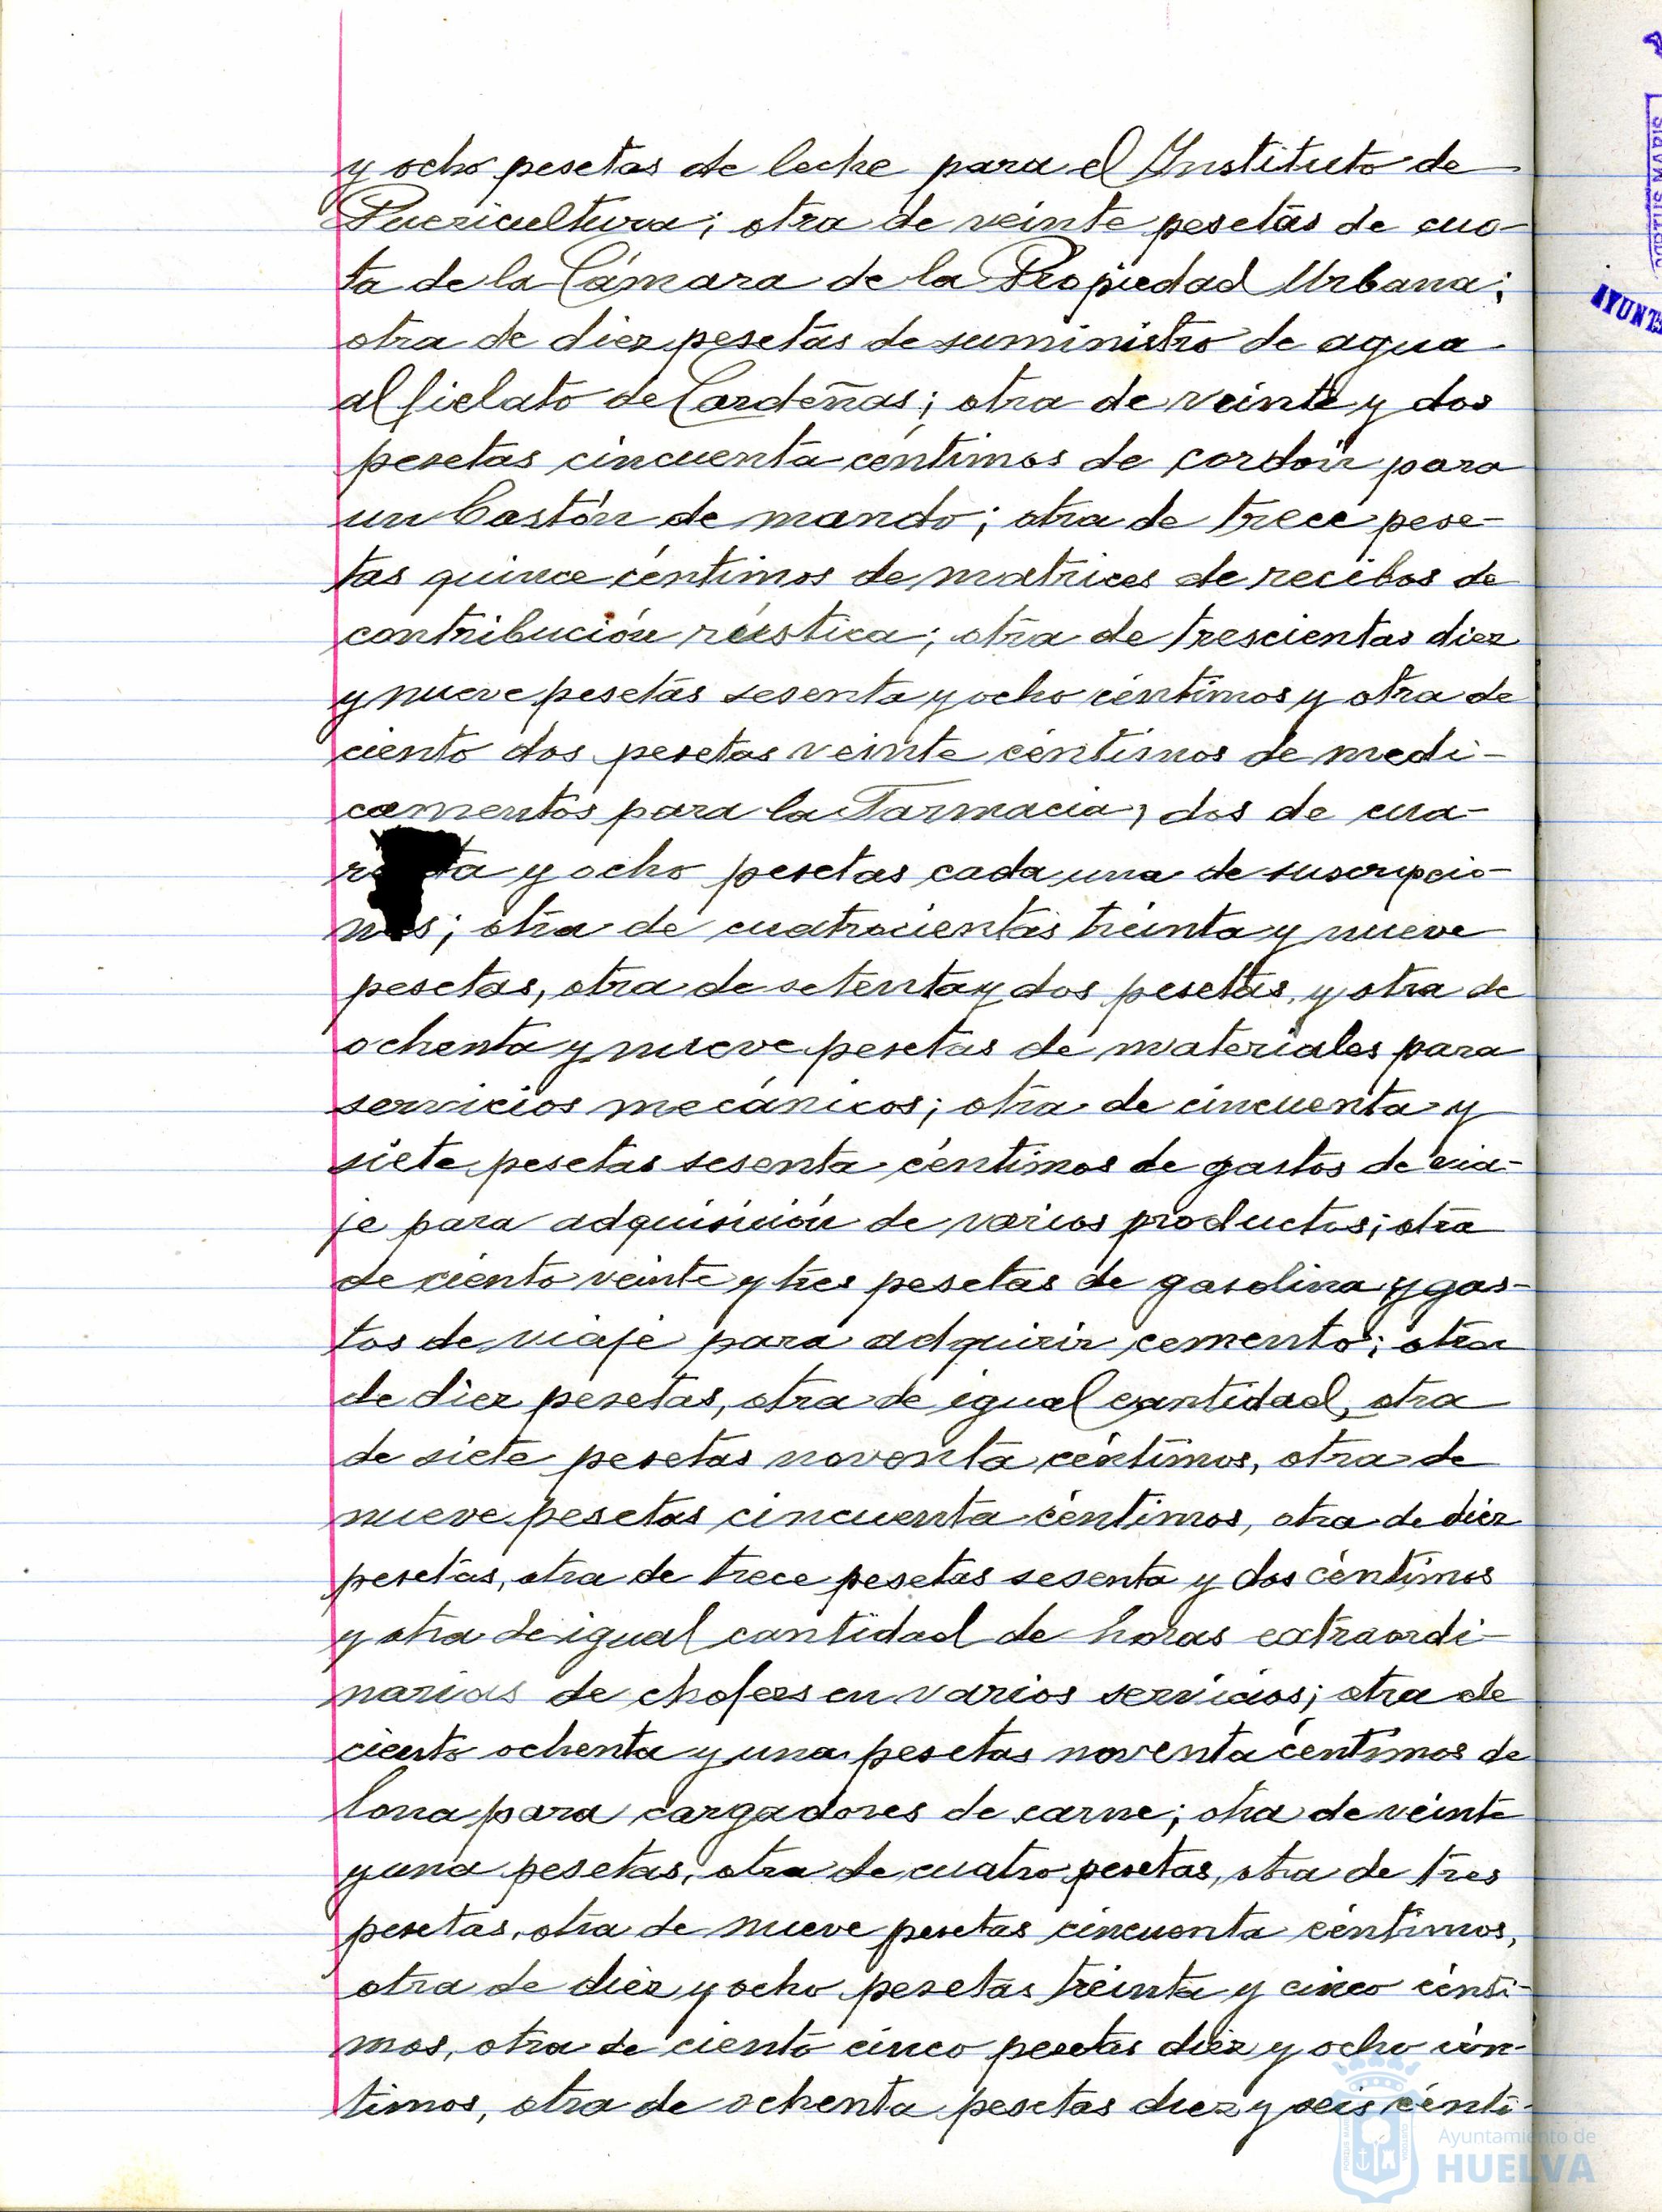 y ocho pesetas de leche para el Instituto de
Puericultura; otra de veinte pesetas de cuo-
ta de la Cámara de la Propiedad Urbana;
otra de diez pesetas de suministro de agua
al fielato de Cardeñas; otra de veinte y dos
pesetas cincuenta céntimos de cordón para
un bastón de mando; otra de trece pese-
tas quince céntimos de matrices de recibos de
contribución rústica; otra de trescientas diez
y nueve pesetas sesenta y ocho céntimos y otra de
ciento dos pesetas veinte céntimos de medi-
camentos para la Farmacia, dos de cua-
ta y ocho pesetas cada una de suscripcio-
nes; otra de cuatrocientas treinta y nueve
pesetas, otra de setenta y dos pesetas, y otra de
ochenta y nueve pesetas de materiales para
servicios mecánicos; otra de cincuenta y
siete pesetas sesenta céntimos de gastos de via-
je para adquisición de varios productos; otra
de ciento veinte y tres pesetas de gasolina y gas-
tos de viaje para adquirir cemento; otra
de diez pesetas, otra de igual cantidad, otra
de siete pesetas noventa céntimos, otra de
nueve pesetas cincuenta céntimos, otra de diez
pesetas, otra de trece pesetas sesenta y dos céntimos
y otra de igual cantidad de horas extraordi-
narias de chofers en varios servicios; otra de
ciento ochenta y una pesetas noventa céntimos de
lona para cargadores de carne; otra de veinte
y una pesetas, otra de cuatro pesetas, otra de tres
pesetas, otra de nueve pesetas cincuenta céntimos,
otra de diez y ocho pesetas treinta y cinco cénti-
mos, otra de ciento cinco pesetas diez y ocho cén-
timos, otra de ochenta pesetas diez y seis cénti-
PORTUS MARIS
AYUNT
Ayuntamiento de
HUELVA